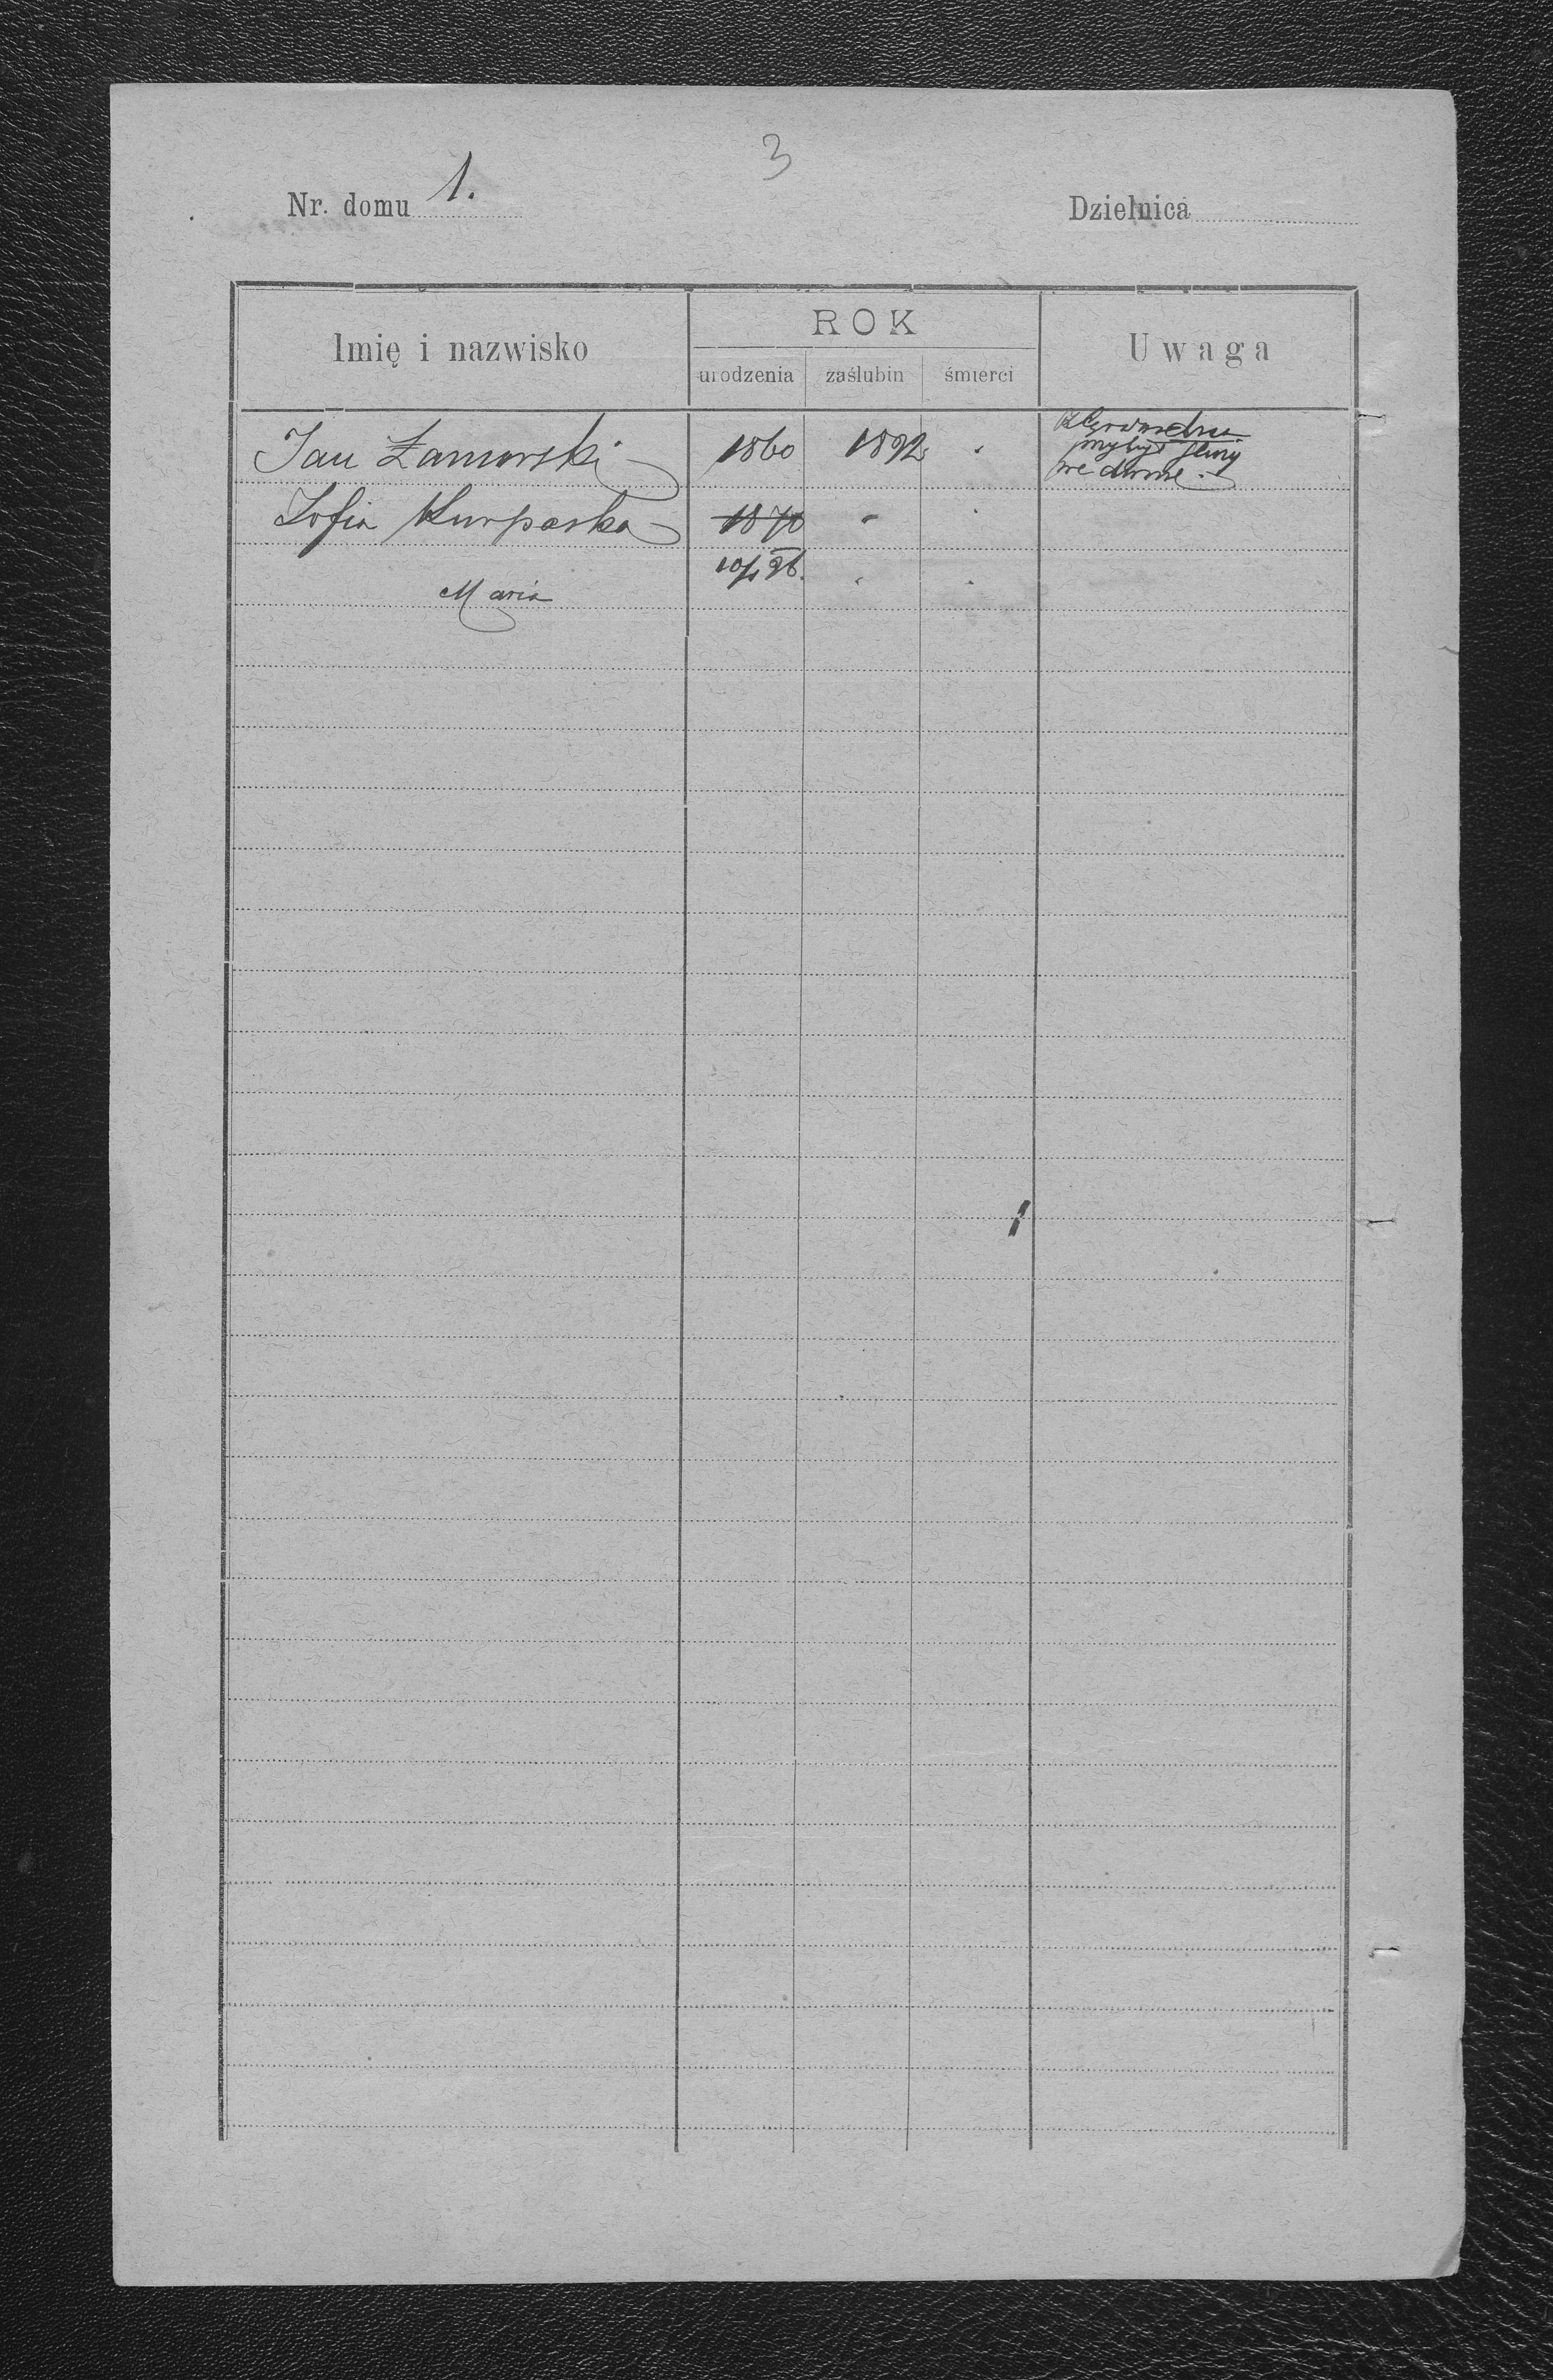 3
Nr. domu 1.
Dzielnica
Imię i nazwisko
ROK
Uwaga
urodzenia zaślubin śmierci
Jan Zamorski 1860 1892
Zofia Kurpaska 1870 "
Maria 96.
we dworze.